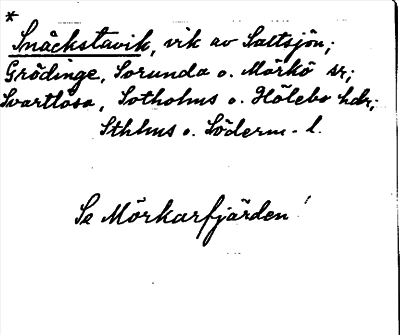 *
Snäckstavik, vik av Saltsjön;
Grödinge, Sorunda o. Mörkö sr;
Svartlösa, Sotholms o. Hölebo hdr;
Sthlms o. Söderm. l.
Se Mörkarfjärden!